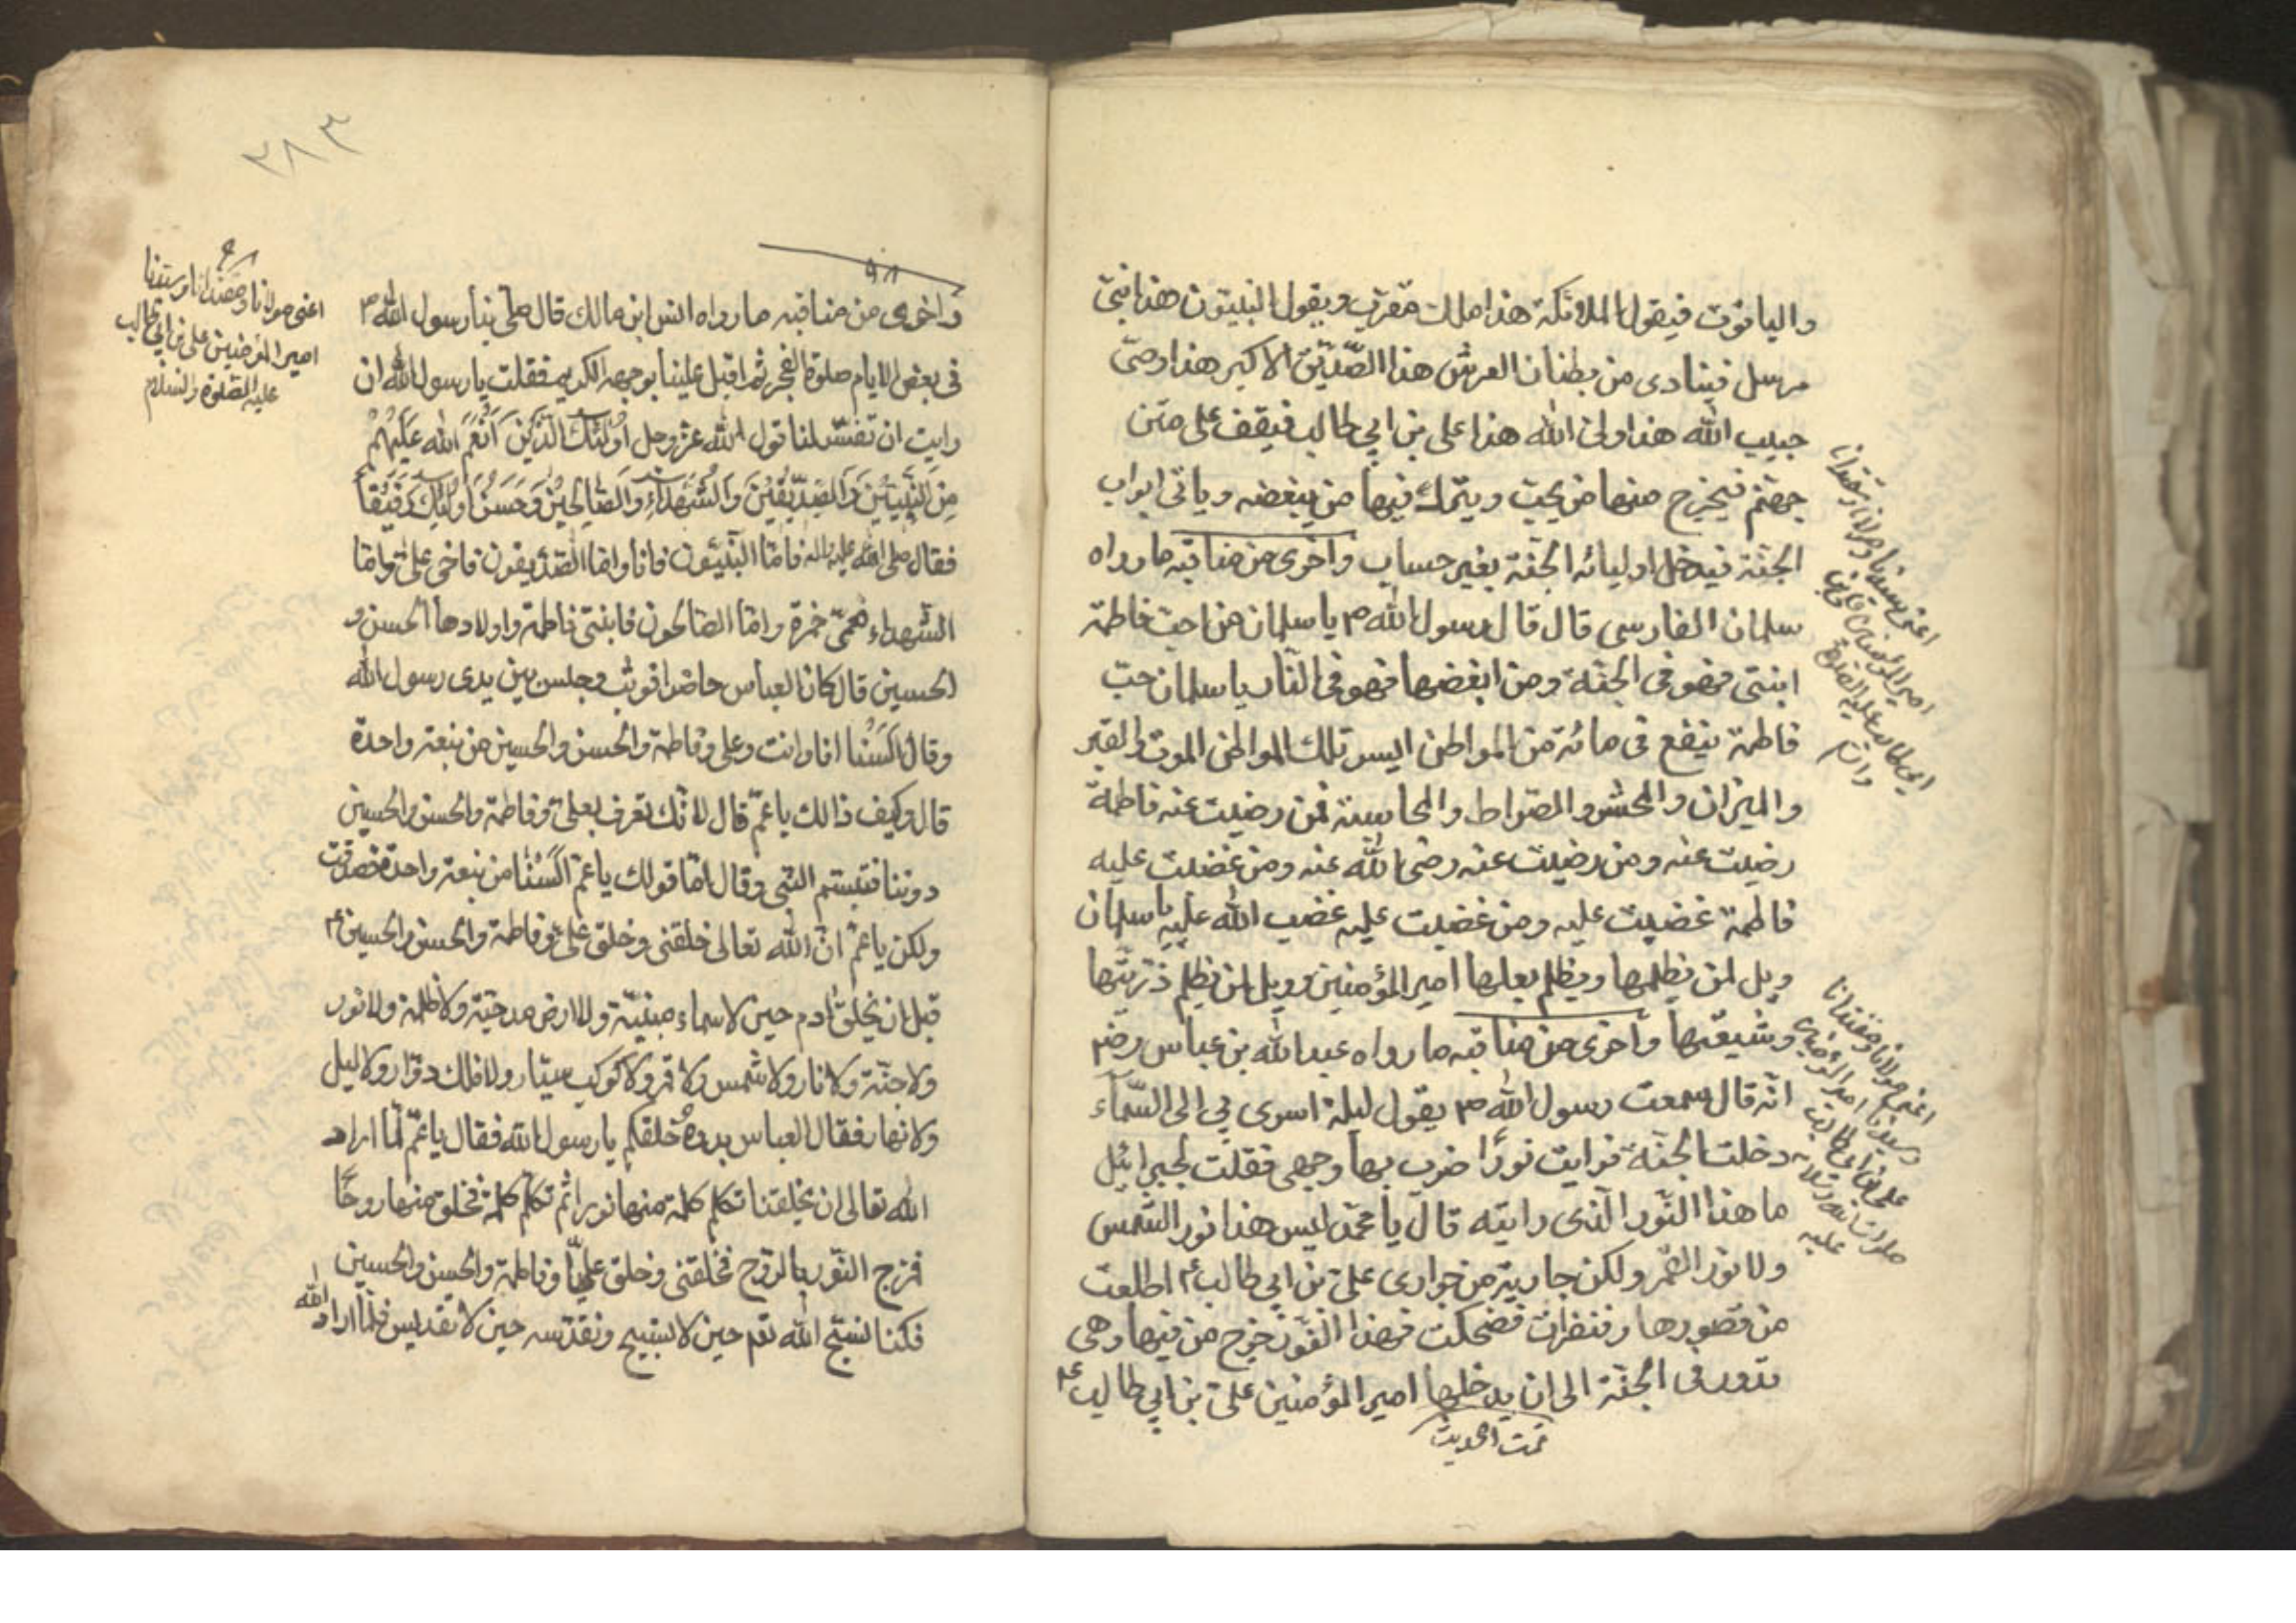 والياقوت فيقول الملائكة هذا ملك مقرب ويقول النبيون هذا نبى
مرسل فينادى من بطنان العرش هذا الصديق الاكبر هذا وصى
حبيب الله هذا ولى الله هذا على بن ابي طالب فيقف على متن
جهنم فيخرج منها من يحب ويترك فيها من يبغضه وياتى ابواب
الجنة فيدخل اوليائه الجنة بغير حساب واخرى من مناقبه ما رواه
سلمان الفارسى قال قال رسول الله ص يا سلمان من احب فاطمة
ابنتى فهو فى الجنة ومن ابغضها فهو فى النار يا سلمان حب
فاطمة ينفع فى مائة من المواطن ايسر تلك المواطن الموت والقبر
والميزان والمحشر والصراط والمحاسبة فمن رضيت عنه فاطمة
رضيت عنه ومن رضيت عنه رضى الله عنه ومن غضبت عليه
فاطمة غضبت عليه ومن غضبت عليه غضب الله عليه يا سلمان
ويل لمن يظلمها ويظلم بعلها امير المؤمنين وويل لمن يظلم ذريتها
وشيعتها واخرى من مناقبه ما رواه عبد الله بن عباس رضم
انه قال سمعت رسول الله ص يقول ليلة اسرى بي الى السماء
دخلت الجنة فرايت نورا ضرب بها وجهى فقلت لجبرائيل
ما هذا النور الذى رايته قال يا محمد ليس هذا نور الشمس
ولا نور القمر ولكن جارية من جوارى على بن ابي طالب ع اطلعت
من قصورها ونظرت فضحكت فهذا النور خرج من فيها وهى
تدور فى الجنة الى ان يدخلها امير المؤمنين على بن ابي طالب ع
تمت الحديث
اعنى سيدنا ومولانا ومقتدانا
امير المؤمنين
ابي طالب عليه الصلوة
اعنى مولانا ومقتدانا
وسيدنا امير المؤمنين
على بن ابي طالب
صلوات الله وسلامه
عليه
٣٨٣
٩٨
واخرى من مناقبه ما رواه انس ابن مالك قال صلى بنا رسول الله ص
فى بعض الايام صلوة الفجر ثم اقبل علينا بوجهه الكريم فقلت يا رسول الله ان
رايت ان تفسر لنا قول الله عز وجل اُولٰئِكَ الَّذينَ اَنْعَمَ الله عَلَيْهِمْ
مِنَ النَّبِيّينَ وَالصِّدّيقينَ وَالشُّهَدٰاءِ وَالصّٰالِحينَ وَحَسُنَ اُولٰئِكَ رَفيقاً
فقال صلى الله عليه واله فاما النبيون فانا واما الصديقون فاخى على واما
الشهداء فعمى حمزة واما الصالحون فابنتى فاطمة واولادها الحسن و
الحسين قال كان العباس حاضرا فوثب وجلس بين يدى رسول الله
وقال السنا انا وانت وعلى وفاطمة والحسن والحسين من نبعة واحدة
قال وكيف ذالك يا عم قال لانك تعرف بعلى وفاطمة والحسن والحسين
دوننا فتبسم النبى وقال اما قولك يا عم السنا من نبعة واحدة فصدقت
ولكن يا عم ان الله تعالى خلقنى وخلق على وفاطمة والحسن والحسين ع
قبل ان يخلق ادم حين لا سماء مبنية ولا ارض مدحية ولا ظلمة ولا نور
ولا جنة ولا نار ولا شمس ولا قمر ولا كوكب سيار ولا فلك دوار ولا ليل
ولا نهار فقال العباس بدوه خلقكم يا رسول الله فقال يا عم لما اراد
الله تعالى ان يخلقنا تكلم كلمة منها نورا ثم تكلم كلمة فخلق منها روحا
فمزج النور بالروح فخلقنى وخلق عليا وفاطمة والحسن والحسين
فكنا نسبح الله تعم حين لا تسبيح ونقدسه حين لا تقديس فلما اراد الله
اعنى مولانا ومقتدانا وسيدنا
امير المؤمنين على بن ابي طالب
عليه الصلوة والسلام